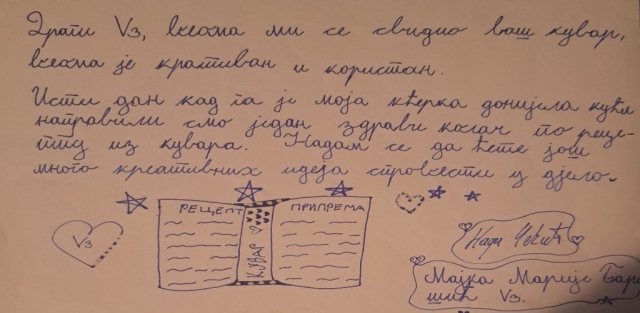 Драги V₃, веома ми се свидио ваш кувар,
веома је кративан и користан.
Исти дан кад га је моја кћерка донијела кући
направили смо један здрави колач по реце-
пту из кувара. Надам се да ћете још
много креативних идеја спровести у дјело.
V₃
РЕЦЕПТ
КУВАР
ПРИПРЕМА
Мајка Марије
V₃.